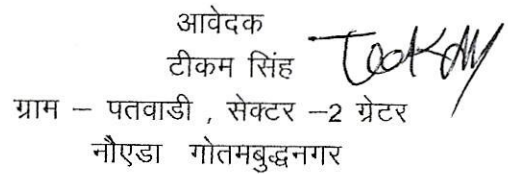 आवेदक
टीकम सिंह
ग्राम – पतवाडी , सेक्टर –2 ग्रेटर
नौएडा गोतमबुद्धनगर